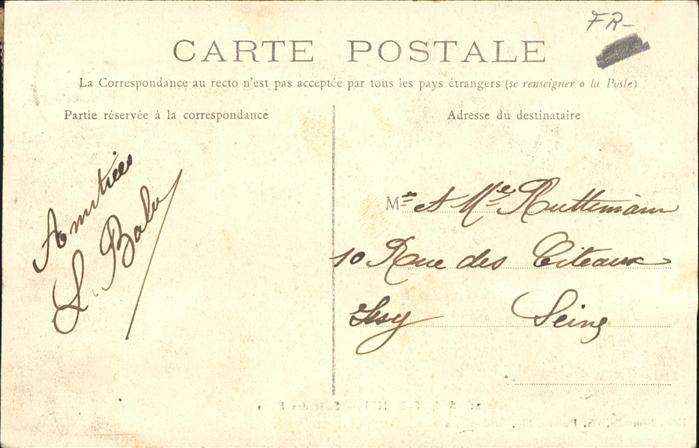 FR-
CARTE POSTALE
La Correspondance au recto n'est pas acceptée par tous les pays étrangers (se renseigner à la Poste)
Partie réservée à la correspondance
Adresse du destinataire
Amitiés
L. Balo
Mr et Mme Ruttimann
10 Rue des Citeaux
Issy Seine